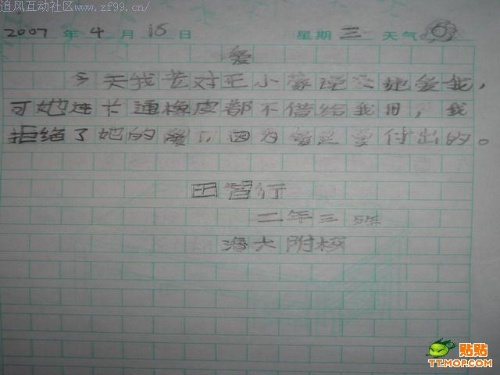 追风互动社区
www.zf99.cn/
2007 年 4 月 16 日 星期 三 天气
爱
今天我芷对王小蒙说她爱我,
可她连卡通橡皮都不借给我用,我
拒绝了她的爱了,因为爱是要付出的。
田智行
二年三班
海大附校
贴贴
TT.MOP.COM